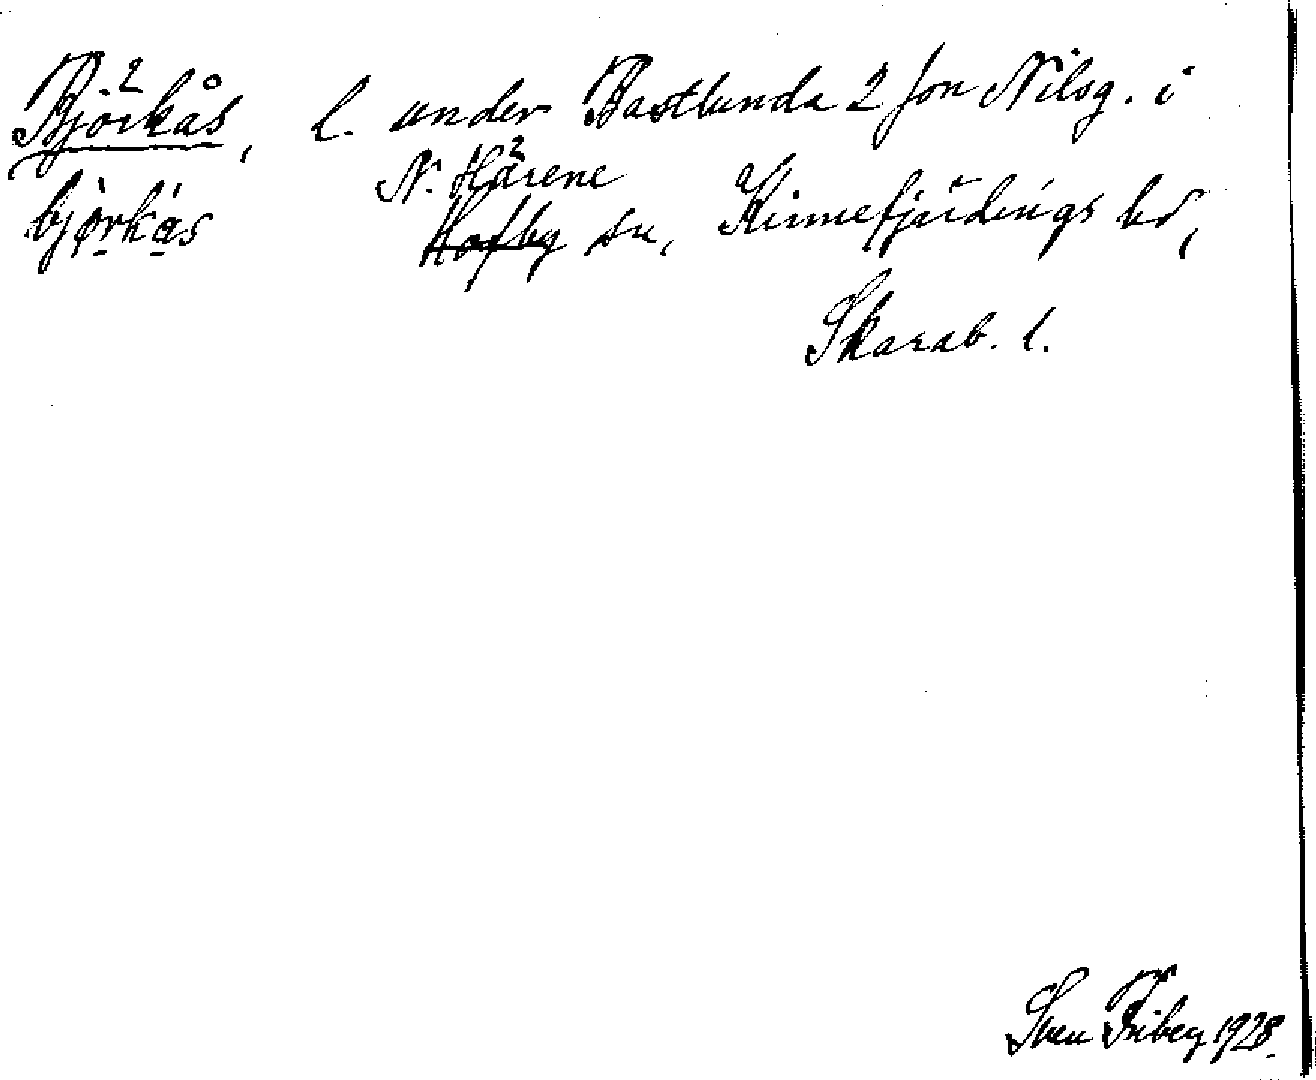 Björkås, l. under Bastlunda 2 Jon Nilsg. i
N. Härene
björkås Hofby sn, Kinnefjärdings hd,
Skarab. l.
Sven Friberg 1928.